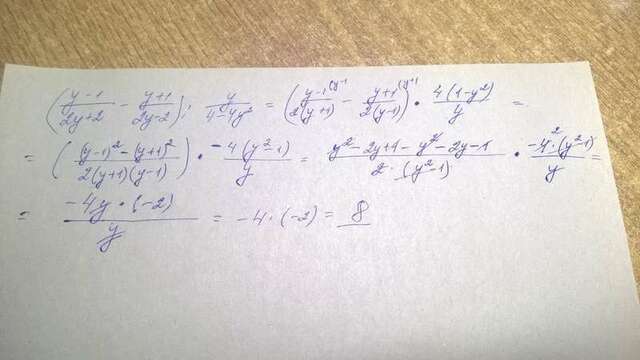 ((y-1)/(2y+2) - (y+1)/(2y-2)) : y/(4-4y²) = ((y-1)^(y-1)/(2(y+1)) - (y+1)^(y+1)/(2(y-1))) · 4(1-y²)/y =
= (((y-1)² - (y+1)²)/(2(y+1)(y-1))) · -4(y²-1)/y = (y²-2y+1-y²-2y-1)/(2·(y²-1)) · -4²·(y²-1)/y =
= (-4y·(-2))/y = -4·(-2) = 8